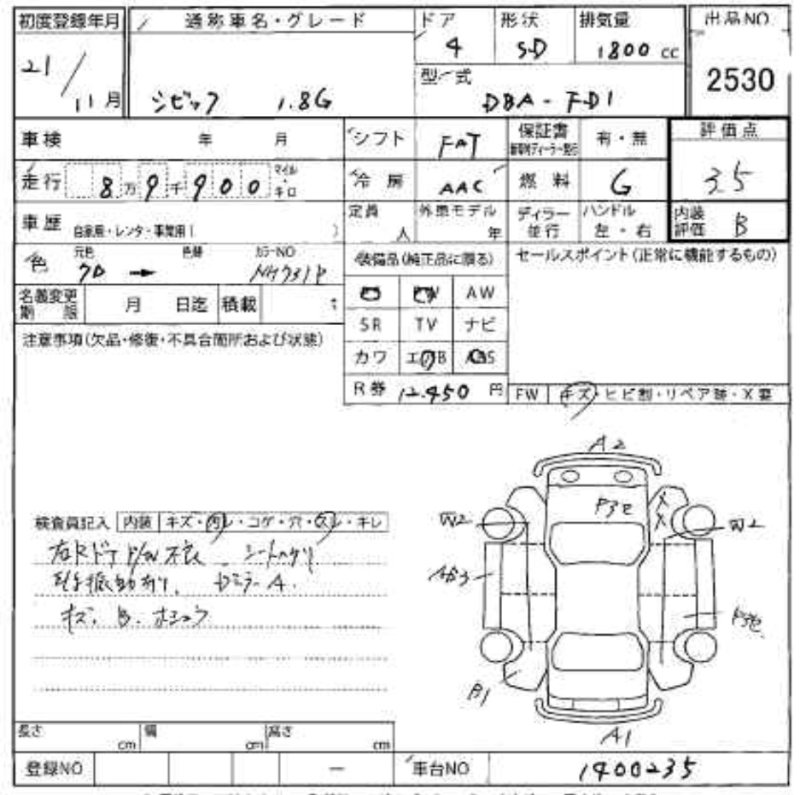 初度登録年月 通称車名・グレード ドア 形状 排気量 出品NO.
21/11月 シビック 1.8G 4 S-D 1800 cc 2530
型式 DBA-FD1
車検 年 月 シフト FAT 保証書 有・無 評価点
走行 8万9千900 マイル・キロ 冷房 AAC 燃料 G 3.5
車歴 自家用・レンタ・事業用( ) 定員 人 外車モデル 年 ディラー 並行 ハンドル 左・右 内装評価 B
色 元色 色替 カラーNO 装備品(純正品に限る) セールスポイント(正常に機能するもの)
→ NH731P
名義変更期限 月 日迄 積載 t AW
注意事項(欠品・修復・不具合箇所および状態) SR TV ナビ
カワ
R券 12,450 円 FW キズ・ヒビ割・リペア跡・X要
A2
P3
検査員記入 内装 キズ・・コゲ・穴・・キレ W2 W2
右Rドア P/W 不良 シート
振動有り A.
キズ. B.
B1
A1
長さ cm 幅 cm 高さ cm
登録NO — 車台NO 1400235